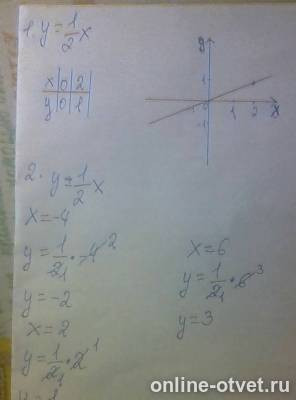 1. y = 1/2 x
x | 0 | 2
y | 0 | 1
y
1
0 1 2 x
-1
2. y = 1/2 x
x = -4
y = 1/2 · -4 2
1
y = -2
x = 2
y = 1/2 · 2 1
1
y = 1
x = 6
y = 1/2 · 6 3
1
y = 3
online-otvet.ru